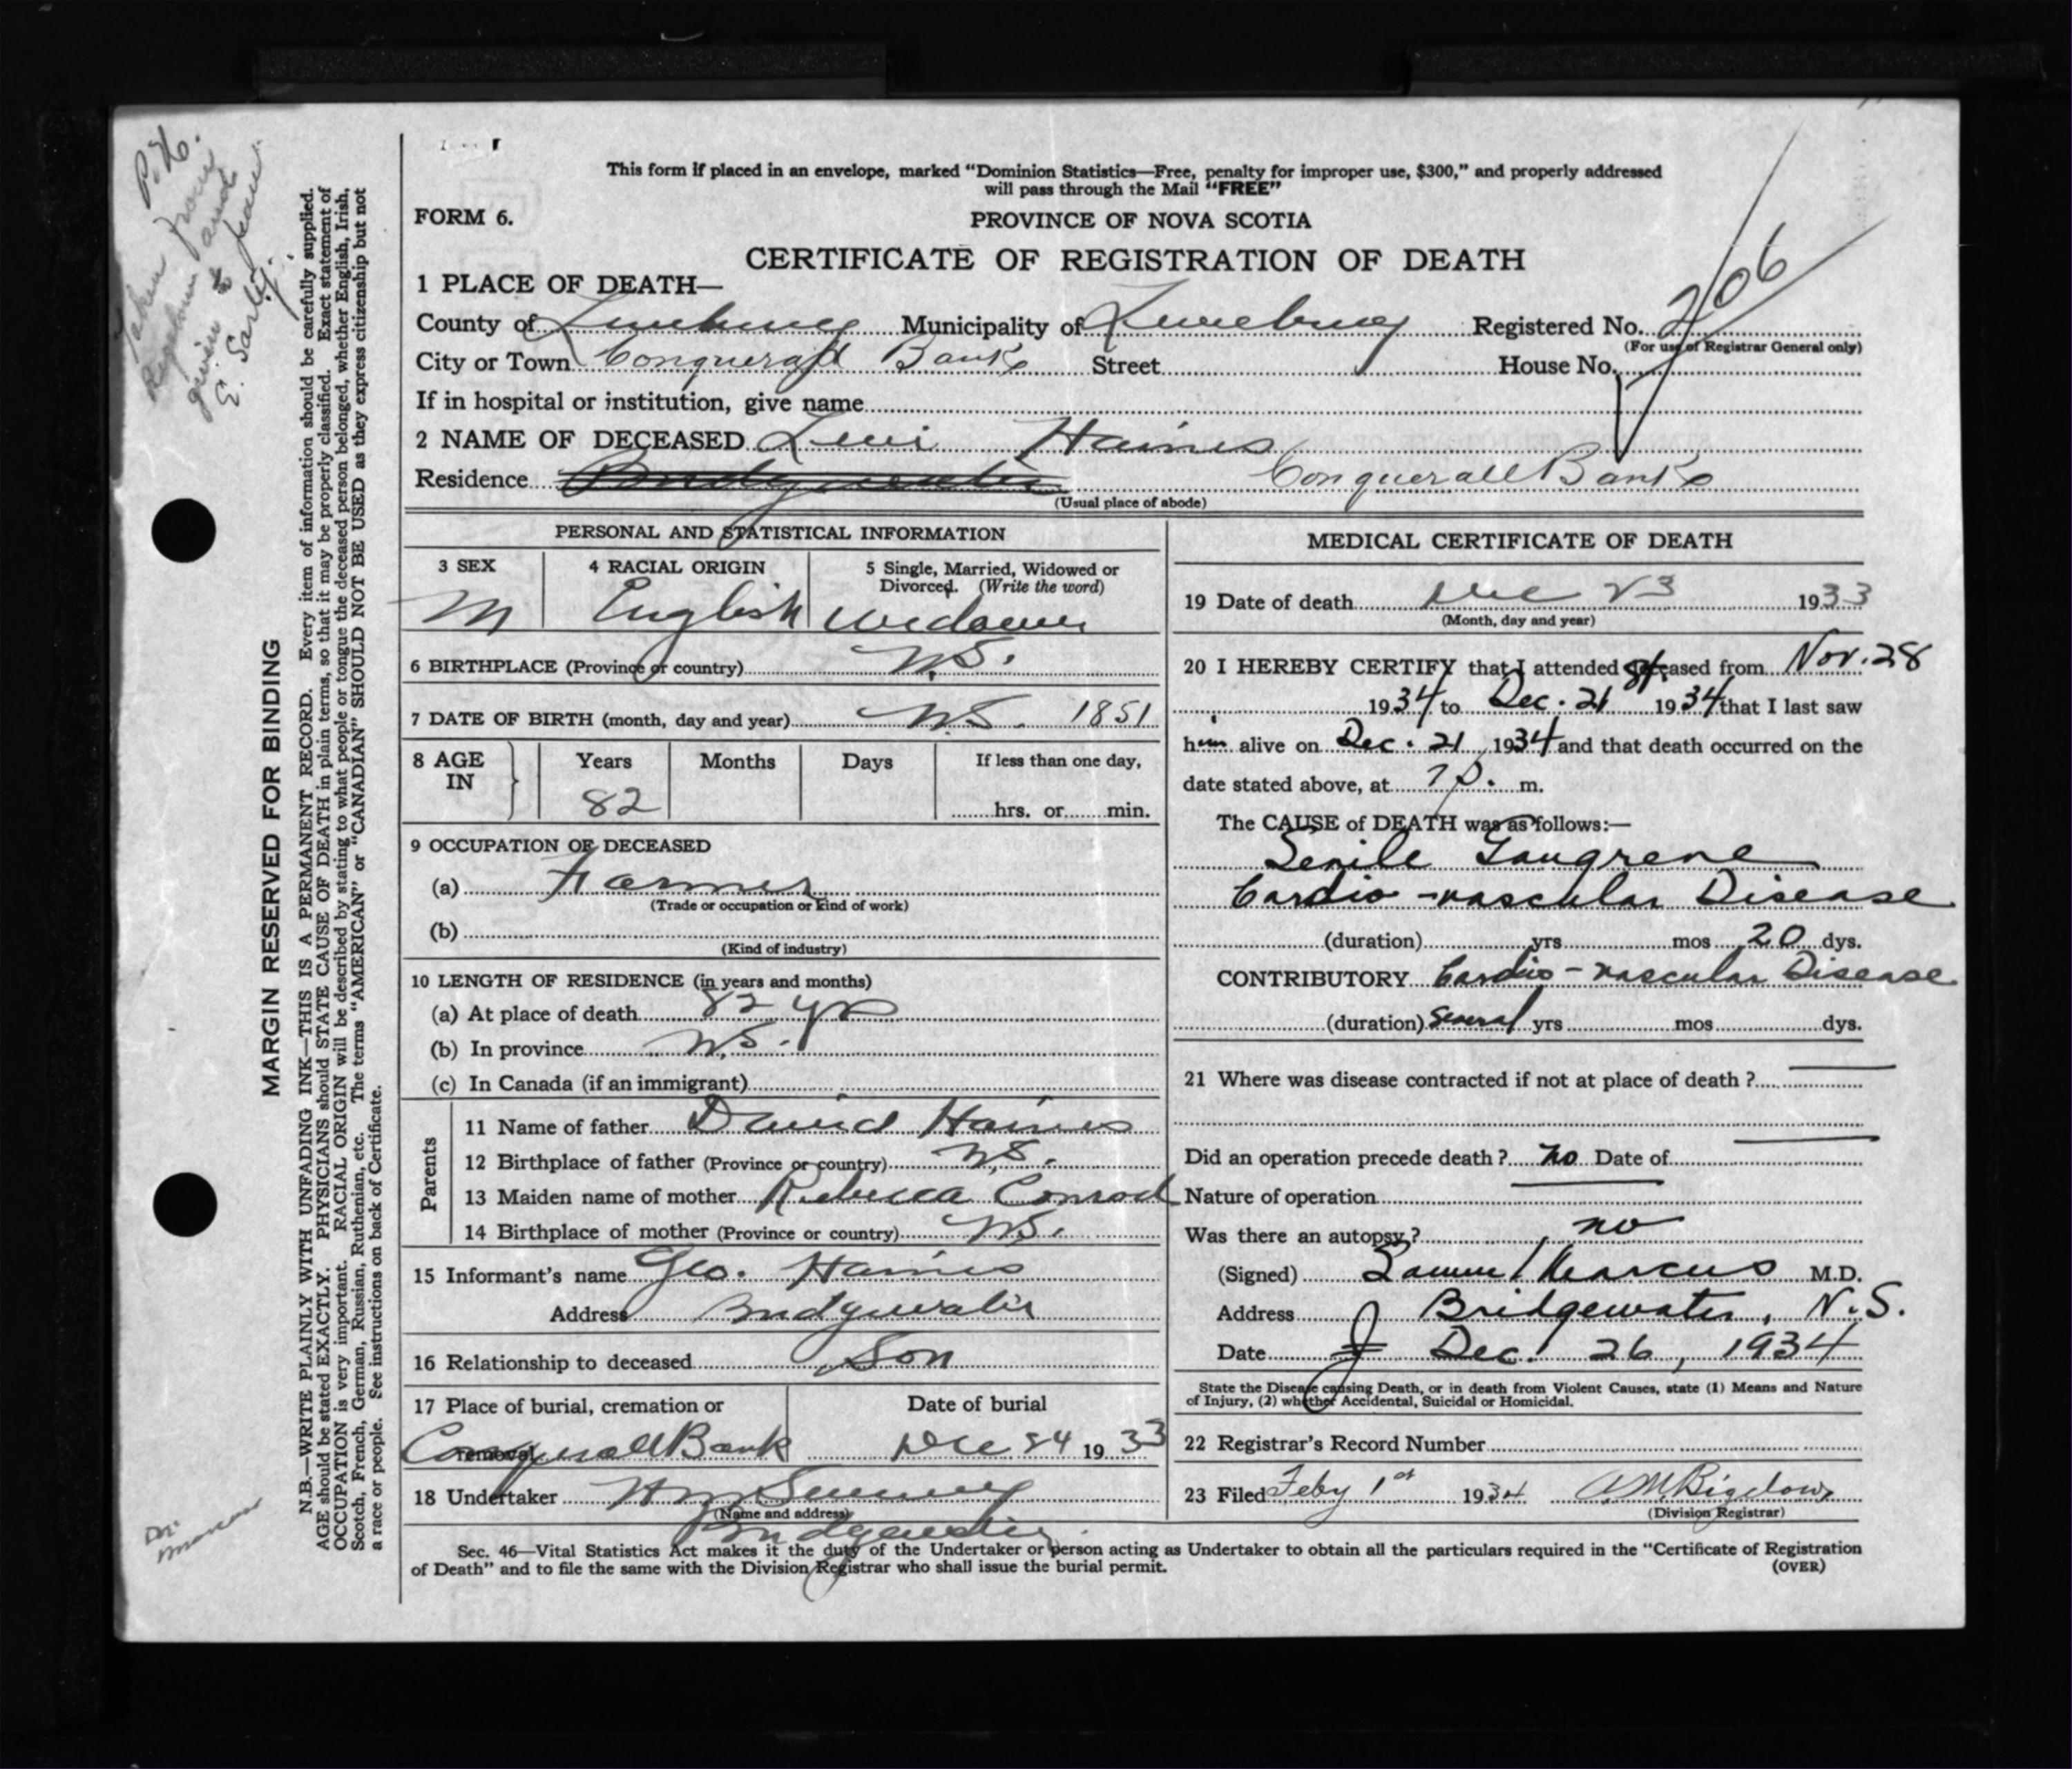 This form if placed in an envelope, marked “Dominion Statistics—Free, penalty for improper use, $300,” and properly addressed
will pass through the Mail “FREE”
FORM 6.
PROVINCE OF NOVA SCOTIA
CERTIFICATE OF REGISTRATION OF DEATH
1 PLACE OF DEATH—
County of Lunenburg Municipality of Lunenburg Registered No. 206
(For use of Registrar General only)
City or Town Conquerall Bank Street House No.
If in hospital or institution, give name
2 NAME OF DECEASED Levi Haines
Residence Bridgewater Conquerall Bank
(Usual place of abode)
PERSONAL AND STATISTICAL INFORMATION
3 SEX
M
4 RACIAL ORIGIN
English
5 Single, Married, Widowed or
Divorced. (Write the word)
Widower
6 BIRTHPLACE (Province or country) N.S.
7 DATE OF BIRTH (month, day and year) N.S. 1851
8 AGE IN
Years Months Days If less than one day,
82 hrs. or min.
9 OCCUPATION OF DECEASED
(a) Farmer
(Trade or occupation or kind of work)
(b)
(Kind of industry)
10 LENGTH OF RESIDENCE (in years and months)
(a) At place of death 82 yrs
(b) In province N.S.
(c) In Canada (if an immigrant)
Parents
11 Name of father David Haines
12 Birthplace of father (Province or country) N.S.
13 Maiden name of mother Rebecca Conrod
14 Birthplace of mother (Province or country) N.S.
15 Informant's name Geo. Haines
Address Bridgewater
16 Relationship to deceased Son
17 Place of burial, cremation or
removal Conquerall Bank
Date of burial
Dec 24 1933
18 Undertaker
(Name and address)
Bridgewater
MEDICAL CERTIFICATE OF DEATH
19 Date of death Dec 23 1933
(Month, day and year)
20 I HEREBY CERTIFY that I attended deceased from Nov. 28
1934 to Dec. 21 1934 that I last saw
him alive on Dec. 21, 1934 and that death occurred on the
date stated above, at 7 p. m.
The CAUSE of DEATH was as follows:—
Senile Gangrene
Cardio-vascular Disease
(duration) yrs mos 20 dys.
CONTRIBUTORY Cardio-vascular Disease
(duration) Several yrs mos dys.
21 Where was disease contracted if not at place of death ?
Did an operation precede death ? no Date of
Nature of operation
Was there an autopsy? no
(Signed) Samuel Marcus M.D.
Address Bridgewater, N.S.
Date Dec. 26, 1934
State the Disease causing Death, or in death from Violent Causes, state (1) Means and Nature
of Injury, (2) whether Accidental, Suicidal or Homicidal.
22 Registrar's Record Number
23 Filed Feby 1st 1934 A.M. Bigelow
(Division Registrar)
Sec. 46—Vital Statistics Act makes it the duty of the Undertaker or person acting as Undertaker to obtain all the particulars required in the “Certificate of Registration
of Death” and to file the same with the Division Registrar who shall issue the burial permit.
(OVER)
MARGIN RESERVED FOR BINDING
N.B.—WRITE PLAINLY WITH UNFADING INK—THIS IS A PERMANENT RECORD. Every item of information should be carefully supplied.
AGE should be stated EXACTLY. PHYSICIANS should STATE CAUSE OF DEATH in plain terms, so that it may be properly classified. Exact statement of
OCCUPATION is very important. RACIAL ORIGIN will be described by stating to what people or tongue the deceased person belonged, whether English, Irish,
Scotch, French, German, Russian, Ruthenian, etc. The terms “AMERICAN” or “CANADIAN” SHOULD NOT BE USED as they express citizenship but not
a race or people. See instructions on back of Certificate.
Taken from
and
given to
E.
Dr.
Marcus